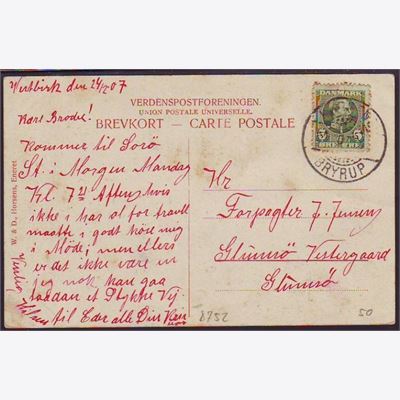 Vestbirk den 24/12 07
Kære Broder!
Kommer til Sorö
St. i Morgen Mandag
Kl 7 21 Aften hvis
ikke i har alt for travlt
maatte i godt köre mig
i Möde, men ellers
er det ikke være en
jeg nok kan gaa
saadan et Stykke Vej.
til Eder alle Din
Venlig Hilsen
VERDENSPOSTFORENINGEN.
UNION POSTALE UNIVERSELLE.
BREVKORT — CARTE POSTALE
W. & D., Horsens, Eneret
DANMARK
5 5
ØRE ØRE
BRYRUP
Hr
Forpagter J. Jensen
Glumsö Vestergaard
Glumsö
8752
50